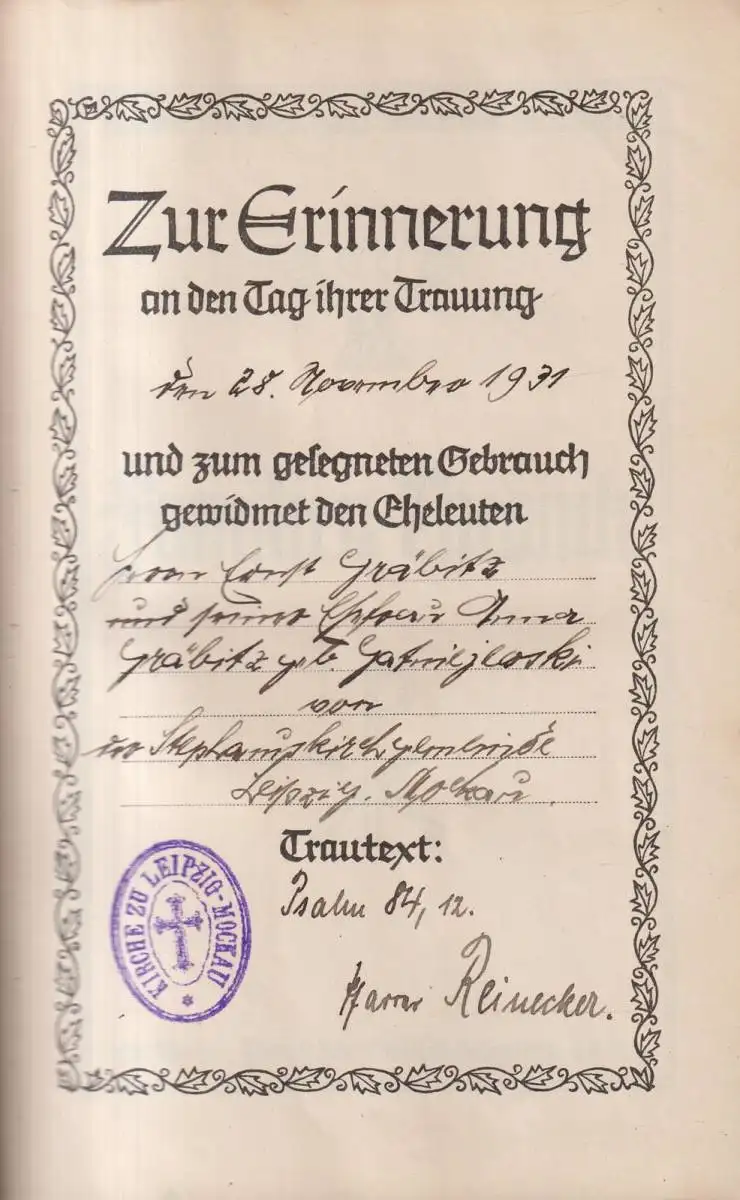 Zur Erinnerung
an den Tag ihrer Trauung
den 28. November 1931
und zum gesegneten Gebrauch
gewidmet den Eheleuten
Herrn Ernst Gräbitz
und seiner Ehefrau Anna
Gräbitz geb.
von
der Stephanuskirchgemeinde
Leipzig. Mockau.
Trautext:
Psalm 84, 12.
KIRCHE ZU LEIPZIG-MOCKAU
Pfarrer Reinecker.